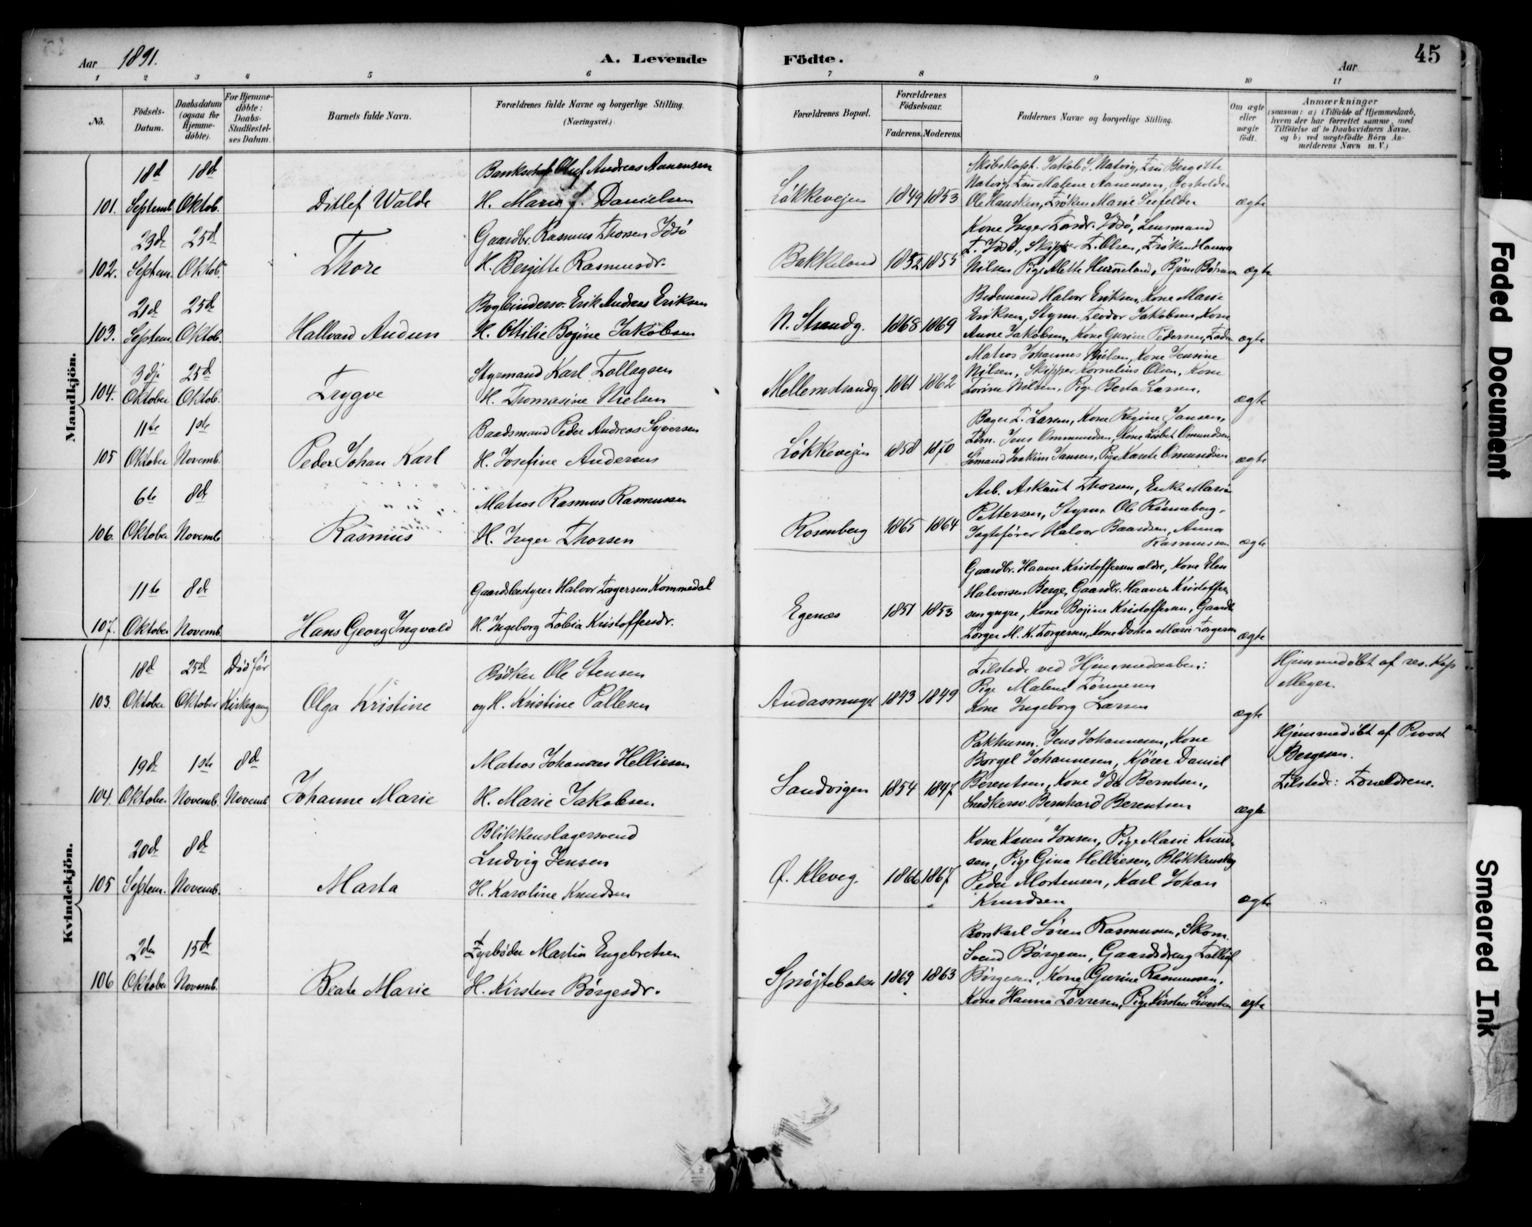 Aar 1891. A. Levende Födte. Aar 45
1 2 3 4 5 6 7 8 9 10 11
No.
Födsels-
Datum.
Daabsdatum
(ogsaa for
Hjemme-
döbte).
For Hjemme-
döbte:
Daabs-
Stadfæstel-
ses Datum.
Barnets fulde Navn.
Forældrenes fulde Navne og borgerlige Stilling.
(Næringsvei.)
Forældrenes Bopæl.
Forældrenes
Födselsaar.
Faderens. Moderens.
Faddernes Navne og borgerlige Stilling.
Om ægte
eller
uægte
födt.
Anmærkninger
Mandkjön.
18d 18d
101. Septemb. Oktob. Ditlef Walde
Olaf Andreas Aanensen
H. Maria J. Danielsen
Løkkeveien 1849 1853
Skibskapt. Jakob S. Natvig, Fru Bergitte
Natvig, Fru Malene Aanensen,
Ole Hansken, Frøken Marie Seefeldt
ægte
23de 25d
102. Septem. Oktob. Thore
Gaardbr. Rasmus Thorsen Idsø
H. Bergitte Rasmusdr.
Bakkeland 1852 1855
Kone Inger Tordr. Idsø, Lensmand
T. Idsø, Skipper T. Olsen, Frøken Hanna
Nilsen Pige Mette Hummeland, Bjørn Børsen
ægte
21d 25d
103. Septem. Oktob. Hallvard Audun
Bogbindersv. Erik Andreas Eriksen
H. Ottilie Bojine Jakobsen
N. Strandg. 1868 1869
Bedemand Halvor Eriksen, Kone Marie
Eriksen, Styrm. Teodor Jakobsen, Kone
Anne Jakobsen, Kone Gurine Pedersen
ægte
3die 25d
104. Oktober Oktob. Trygve
Styrmand Karl Tollagsen
H. Tromasine Nielsen
Mellemstrandg 1861 1862
Matros Johannes Nilsen, Kone Jensine
Nilsen, Skipper Kornelius Olsen, Kone
Torine Nilsen, Pige Berta Larsen.
ægte
11te 1ste
105 Oktober Novemb. Peder Johan Karl
Baadsmand Peder Andreas Syversen
H. Josefine Andersen
Løkkeveien 1858 1870
Bager T. Larsen, Kone Regine Jansen,
Tøm. Jens Ommundsen, Kone Lisbet Omundsen,
Sømand Joakim Jansen, Pige Kamte Omundsen
ægte
6te 8d
106. Oktober Novemb. Rasmus
Matros Rasmus Rasmussen
H. Inger Thorsen
Rosenberg 1865 1864
Arb. Askaut Thorsen, Enke Maria
Pettersen, Styrm. Ole Rønneberg,
Jagtefører Halvor Baardsen, Anna
Rasmussen
ægte
11te 8de
107. Oktober Novemb. Hans Georg Ingvald
Gaardsbestyrer Halvor Torgersen Kommedal
H. Ingeborg Tobia Kristoffersdr.
Egenæs 1851 1853
Gaardbr. Haaver Kristoffersen ældre, Kone Elen
Halvorsen Berge, Gaardbr. Haaver Kristoffer-
sen yngre, Kone Bojine Kristoffersen, Gaardb
Torger M. K. Torgersen, Kone Dortea Marie Torgersen
ægte
Kvindekjön.
18d 25d Død før
103. Oktober Oktober Kirkegang Olga Kristine
Bødker Ole Stensen
og H. Kristine Pallesen
Andasmuget 1843 1849
Tilstede ved Hjemmedaaben:
Pige Malene Tønnesen
Kone Ingeborg Larsen
ægte
Hjemmedöbt af res. Kap
Meyer.
19d 1ste 8d
104. Oktober. Novemb. Novemb. Johanne Marie
Matros Johannes Helliesen
H. Marie Jakobsen
Sandvigen 1854 1847
Pakhusm. Jens Johannesen, Kone
Borgel Johannesen, Kjører Daniel
Berentsen, Kone Ida Berntsen,
Snedkersv Bernhard Berentsen
ægte
Hjemmedöbt af Provst
Bergesen.
Tilstede: Forældrene.
20d 8d
105 Septem. Novemb. Marta
Blikkenslagersvend
Ludvig Jensen
H. Karoline Knudsen
Ø. Kleveg. 1866 1867
Kone Karen Jonsen, Pige Marie Knud-
sen, Pige Gina Helliesen, Blikkenslag
Peder Mortensen, Karl Johan
Knudsen
ægte
2den 15d
106 Oktober Novemb. Beate Marie
Fyrbøder Martin Engebretsen
H. Kirsten Børgesdr.
Sprøjtebakken 1863 1863
Søren Rasmussen, Skom.
Svend Børgesen, Gaardsdreng Tollef
Børgesen, Kone Gurine Rasmussen,
Kone Hanna Torresen, Pige Kirsten Sivertsen
ægte
Faded Document
Smeared Ink